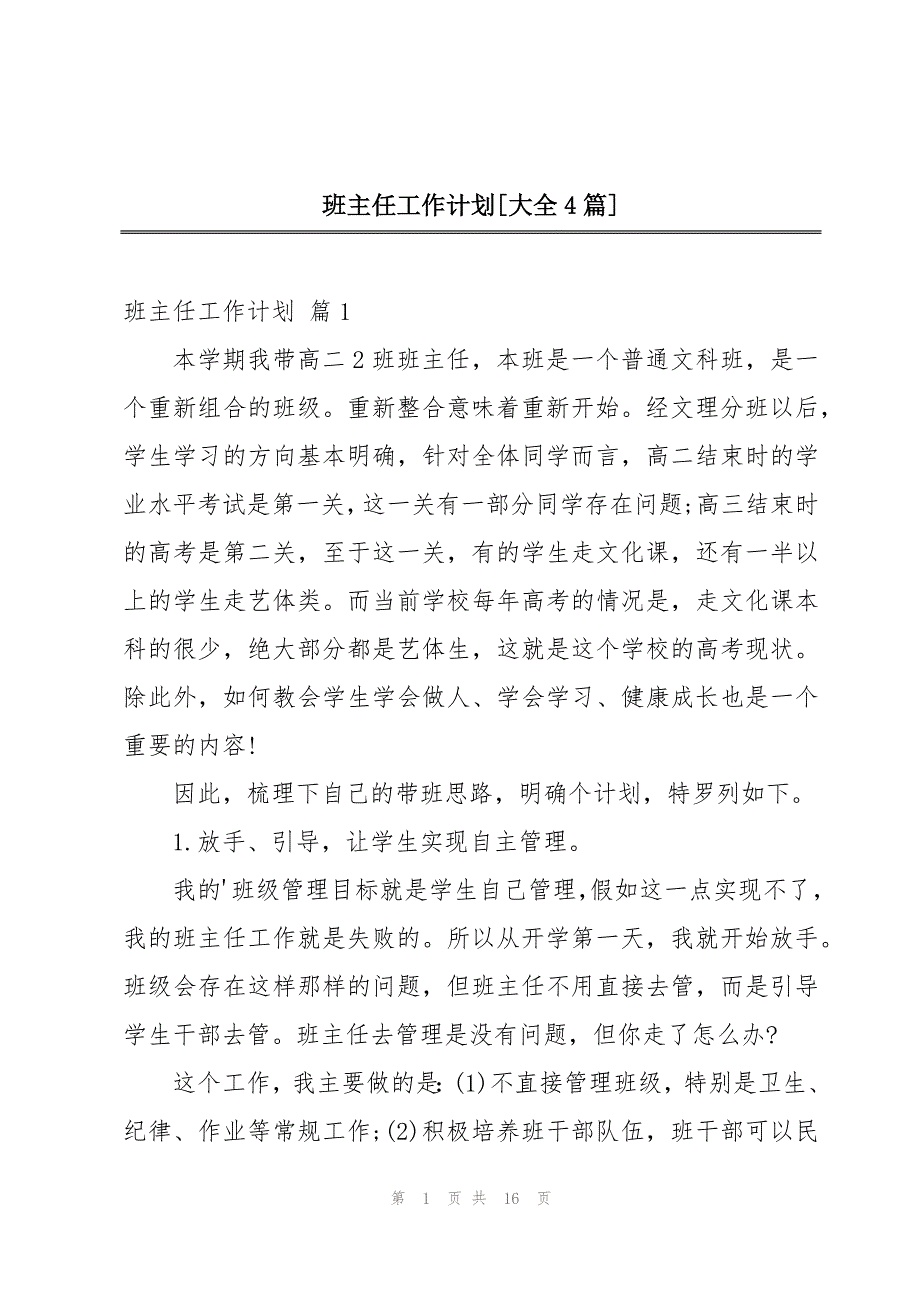 班主任工作计划[大全4篇]
班主任工作计划 篇1
本学期我带高二2班班主任，本班是一个普通文科班，是一
个重新组合的班级。重新整合意味着重新开始。经文理分班以后，
学生学习的方向基本明确，针对全体同学而言，高二结束时的学
业水平考试是第一关，这一关有一部分同学存在问题;高三结束时
的高考是第二关，至于这一关，有的学生走文化课，还有一半以
上的学生走艺体类。而当前学校每年高考的情况是，走文化课本
科的很少，绝大部分都是艺体生，这就是这个学校的高考现状。
除此外，如何教会学生学会做人、学会学习、健康成长也是一个
重要的内容!
因此，梳理下自己的带班思路，明确个计划，特罗列如下。
1.放手、引导，让学生实现自主管理。
我的'班级管理目标就是学生自己管理，假如这一点实现不了，
我的班主任工作就是失败的。所以从开学第一天，我就开始放手。
班级会存在这样那样的问题，但班主任不用直接去管，而是引导
学生干部去管。班主任去管理是没有问题，但你走了怎么办?
这个工作，我主要做的是：(1)不直接管理班级，特别是卫生、
纪律、作业等常规工作;(2)积极培养班干部队伍，班干部可以民
第 1 页 共 16 页